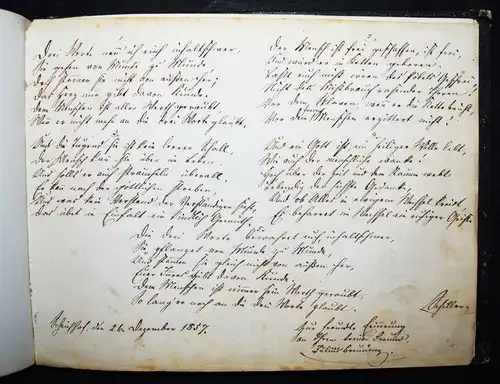 Drei Worte nenn' ich euch inhaltschwer,
Sie gehen von Munde zu Munde
Doch stammen sie nicht von außen her;
Das Herz nur gibt davon Kunde.
Dem Menschen ist aller Werth geraubt
Wenn er nicht mehr an die drei Worte glaubt.
Und die Tugend sie ist kein leerer Schall,
Der Mensch kann sie üben im Leben.
Und sollt er auch straucheln überall
Er kann nach der göttlichen streben,
Und was kein Verstand der Verständigen sieht,
Das übet in Einfalt ein kindlich Gemüth.
Der Mensch ist frei geschaffen, ist frei,
Und würd er in Ketten geboren.
Laßt euch nicht irren des Pöbels Geschrei
Nicht den Mißbrauch rasender Thoren!
Vor dem Sklaven, wenn er die Kette bricht,
Vor dem Menschen erzittert nicht!
Und ein Gott ist, ein heiliger Wille lebt,
Wie auch der menschliche wanke!
Hoch über der Zeit und dem Raum webt
Lebendig der höchste Gedanke,
Und ob Alles in ewigem Wechsel kreist
Es beharret im Wechsel ein ruhiger Geist.
Die drei Worte bewahret euch, inhaltschwer,
Sie pflanzet von Munde zu Munde,
Und stammen sie gleich nicht von außen her,
Euer Innres gibt davon Kunde.
Dem Menschen ist nimmer sein Werth geraubt,
So lang er noch an die drei Worte glaubt.
Schiller.
den 26. Dezember 1857.
Zur freundl. Erinnerung
von Ihrem treuen Freund
Julius